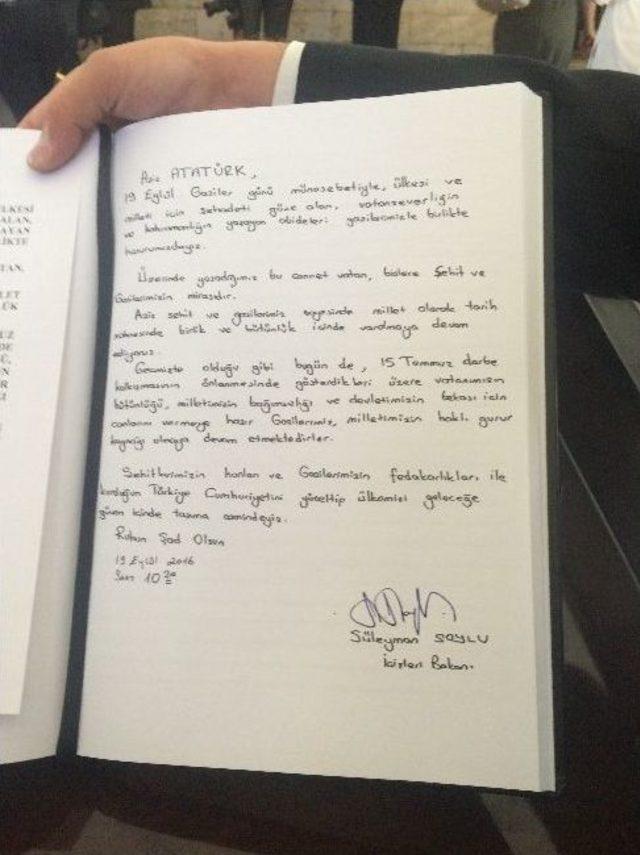 ÜLKESİ
ALAN,
AYAN
LİKTE
TAN,
LET
LÜK
UZ
DE
Ü,
ÜN
IR
Gİ
Aziz ATATÜRK,
19 Eylül Gaziler günü münasebetiyle, ülkesi ve
milleti için şehadeti göze alan, vatanseverliğin
ve kahramanlığın yaşayan abideleri gazilerimizle birlikte
huzurunuzdayız.
Üzerinde yaşadığımız bu cennet vatan, bizlere Şehit ve
Gazilerimizin mirasıdır.
Aziz şehit ve gazilerimiz sayesinde millet olarak tarih
sahnesinde birlik ve bütünlük içinde varolmaya devam
ediyoruz.
Geçmişte olduğu gibi bugün de, 15 Temmuz darbe
kalkışmasının önlenmesinde gösterdikleri üzere vatanımızın
bütünlüğü, milletimizin bağımsızlığı ve devletimizin bekası için
canlarını vermeye hazır Gazilerimiz, milletimizin haklı gurur
kaynağı olmaya devam etmektedirler.
Şehitlerimizin kanları ve Gazilerimizin fedakarlıkları ile
kurduğun Türkiye Cumhuriyetini yüceltip ülkemizi geleceğe
güven içinde taşıma azmindeyiz.
Ruhun Şad Olsun
19 Eylül 2016
Saat 10 30
Süleyman SOYLU
İçişleri Bakanı